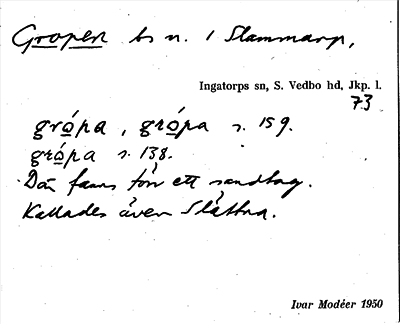 Gropen bs n. i Slammarp,
Ingatorps sn, S. Vedbo hd, Jkp. l.
73
grópa, grópa s. 159.
grópa s. 138.
Där fanns förr ett sandtag.
Kallades även Slåttna.
Ivar Modéer 1950